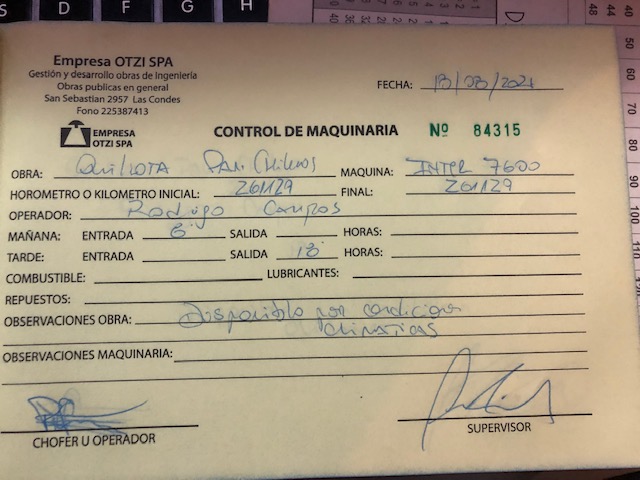 Empresa OTZI SPA
Gestión y desarrollo obras de Ingeniería
Obras publicas en general
San Sebastian 2957 Las Condes
Fono 225387413
FECHA:
EMPRESA
OTZI SPA
CONTROL DE MAQUINARIA Nº 84315
OBRA: Quillota MAQUINA: INTER 7600
HOROMETRO O KILOMETRO INICIAL: 261129 FINAL: 261129
OPERADOR: Rodrigo Campos
MAÑANA: ENTRADA SALIDA HORAS:
TARDE: ENTRADA SALIDA 18 HORAS:
COMBUSTIBLE: LUBRICANTES:
REPUESTOS:
OBSERVACIONES OBRA: Disponible por condicion
climaticas
OBSERVACIONES MAQUINARIA:
CHOFER U OPERADOR
SUPERVISOR
S D F G H